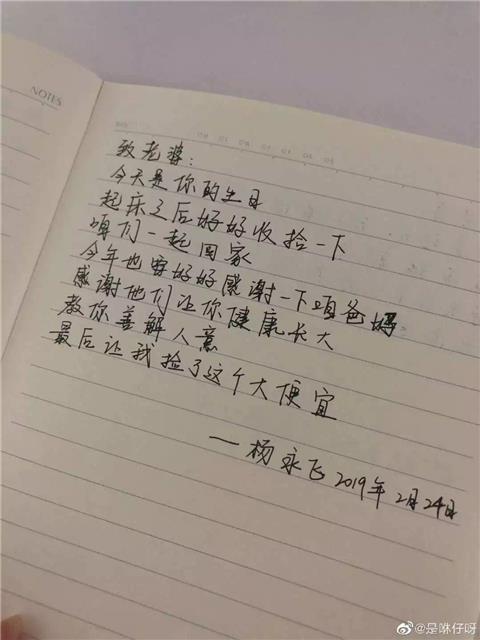 NOTES
致老婆：
今天是你的生日
起床之后好好收拾一下
咱们一起回家
今年也要好好感谢一下咱爸妈
感谢他们让你健康长大
教你善解人意
最后让我捡了这个大便宜
——杨永飞 2019年2月24日
@是咻仔呀